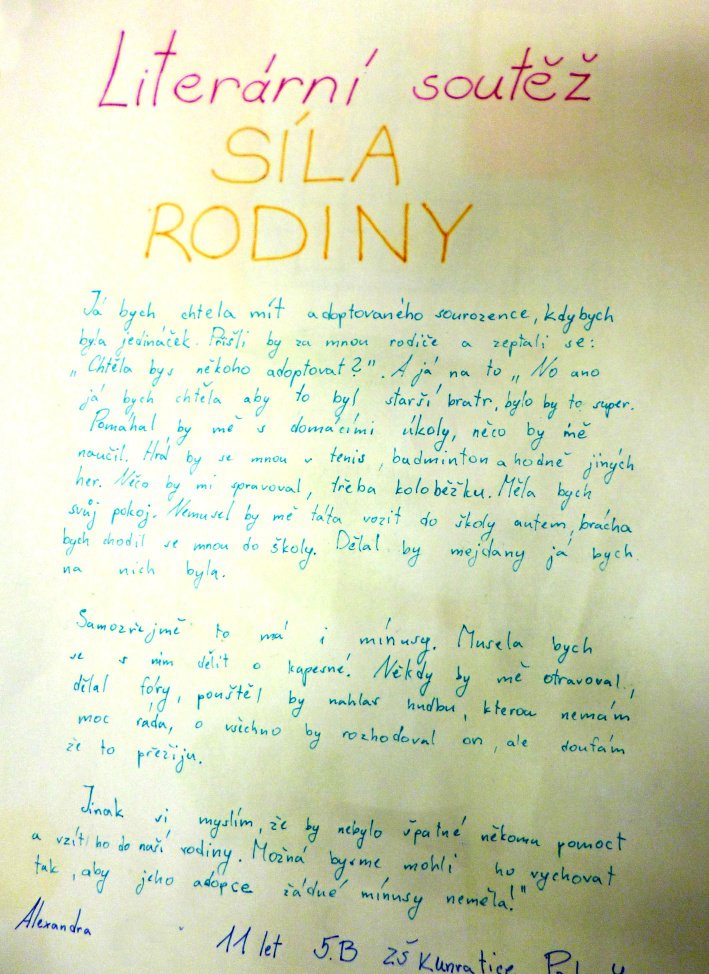 Literární soutěž
SÍLA
RODINY
Já bych chtela mít adoptovaného sourozence, kdybych
byla jedináček. Přišli by za mnou rodiče a zeptali se:
„Chtěla bys někoho adoptovat?". A já na to „No ano
já bych chtěla aby to byl starší bratr, bylo by to super.
Pomáhal by mě s domácími úkoly, něco by mě
naučil. Hrál by se mnou v tenis, badminton a hodně jiných
her. Něco by mi spravoval, třeba koloběžku. Měla bych
svůj pokoj. Nemusel by mě táta vozit do školy autem, brácha
bych chodil se mnou do školy. Dělal by mejdany já bych
na nich byla.
Samozřejmě to má i mínusy. Musela bych
se s ním dělit o kapesné. Někdy by mě otravoval,
dělal fóry, pouštěl by nahlas hudbu, kterou nemám
moc ráda, o všechno by rozhodoval on, ale doufám
že to přežiju.
Jinak si myslím, že by nebylo špatné někomu pomoct
a vzít ho do naší rodiny. Možná bysme mohli ho vychovat
tak, aby jeho adopce žádné mínusy neměla!"
Alexandra
11 let 5.B ZŠ Kunratice